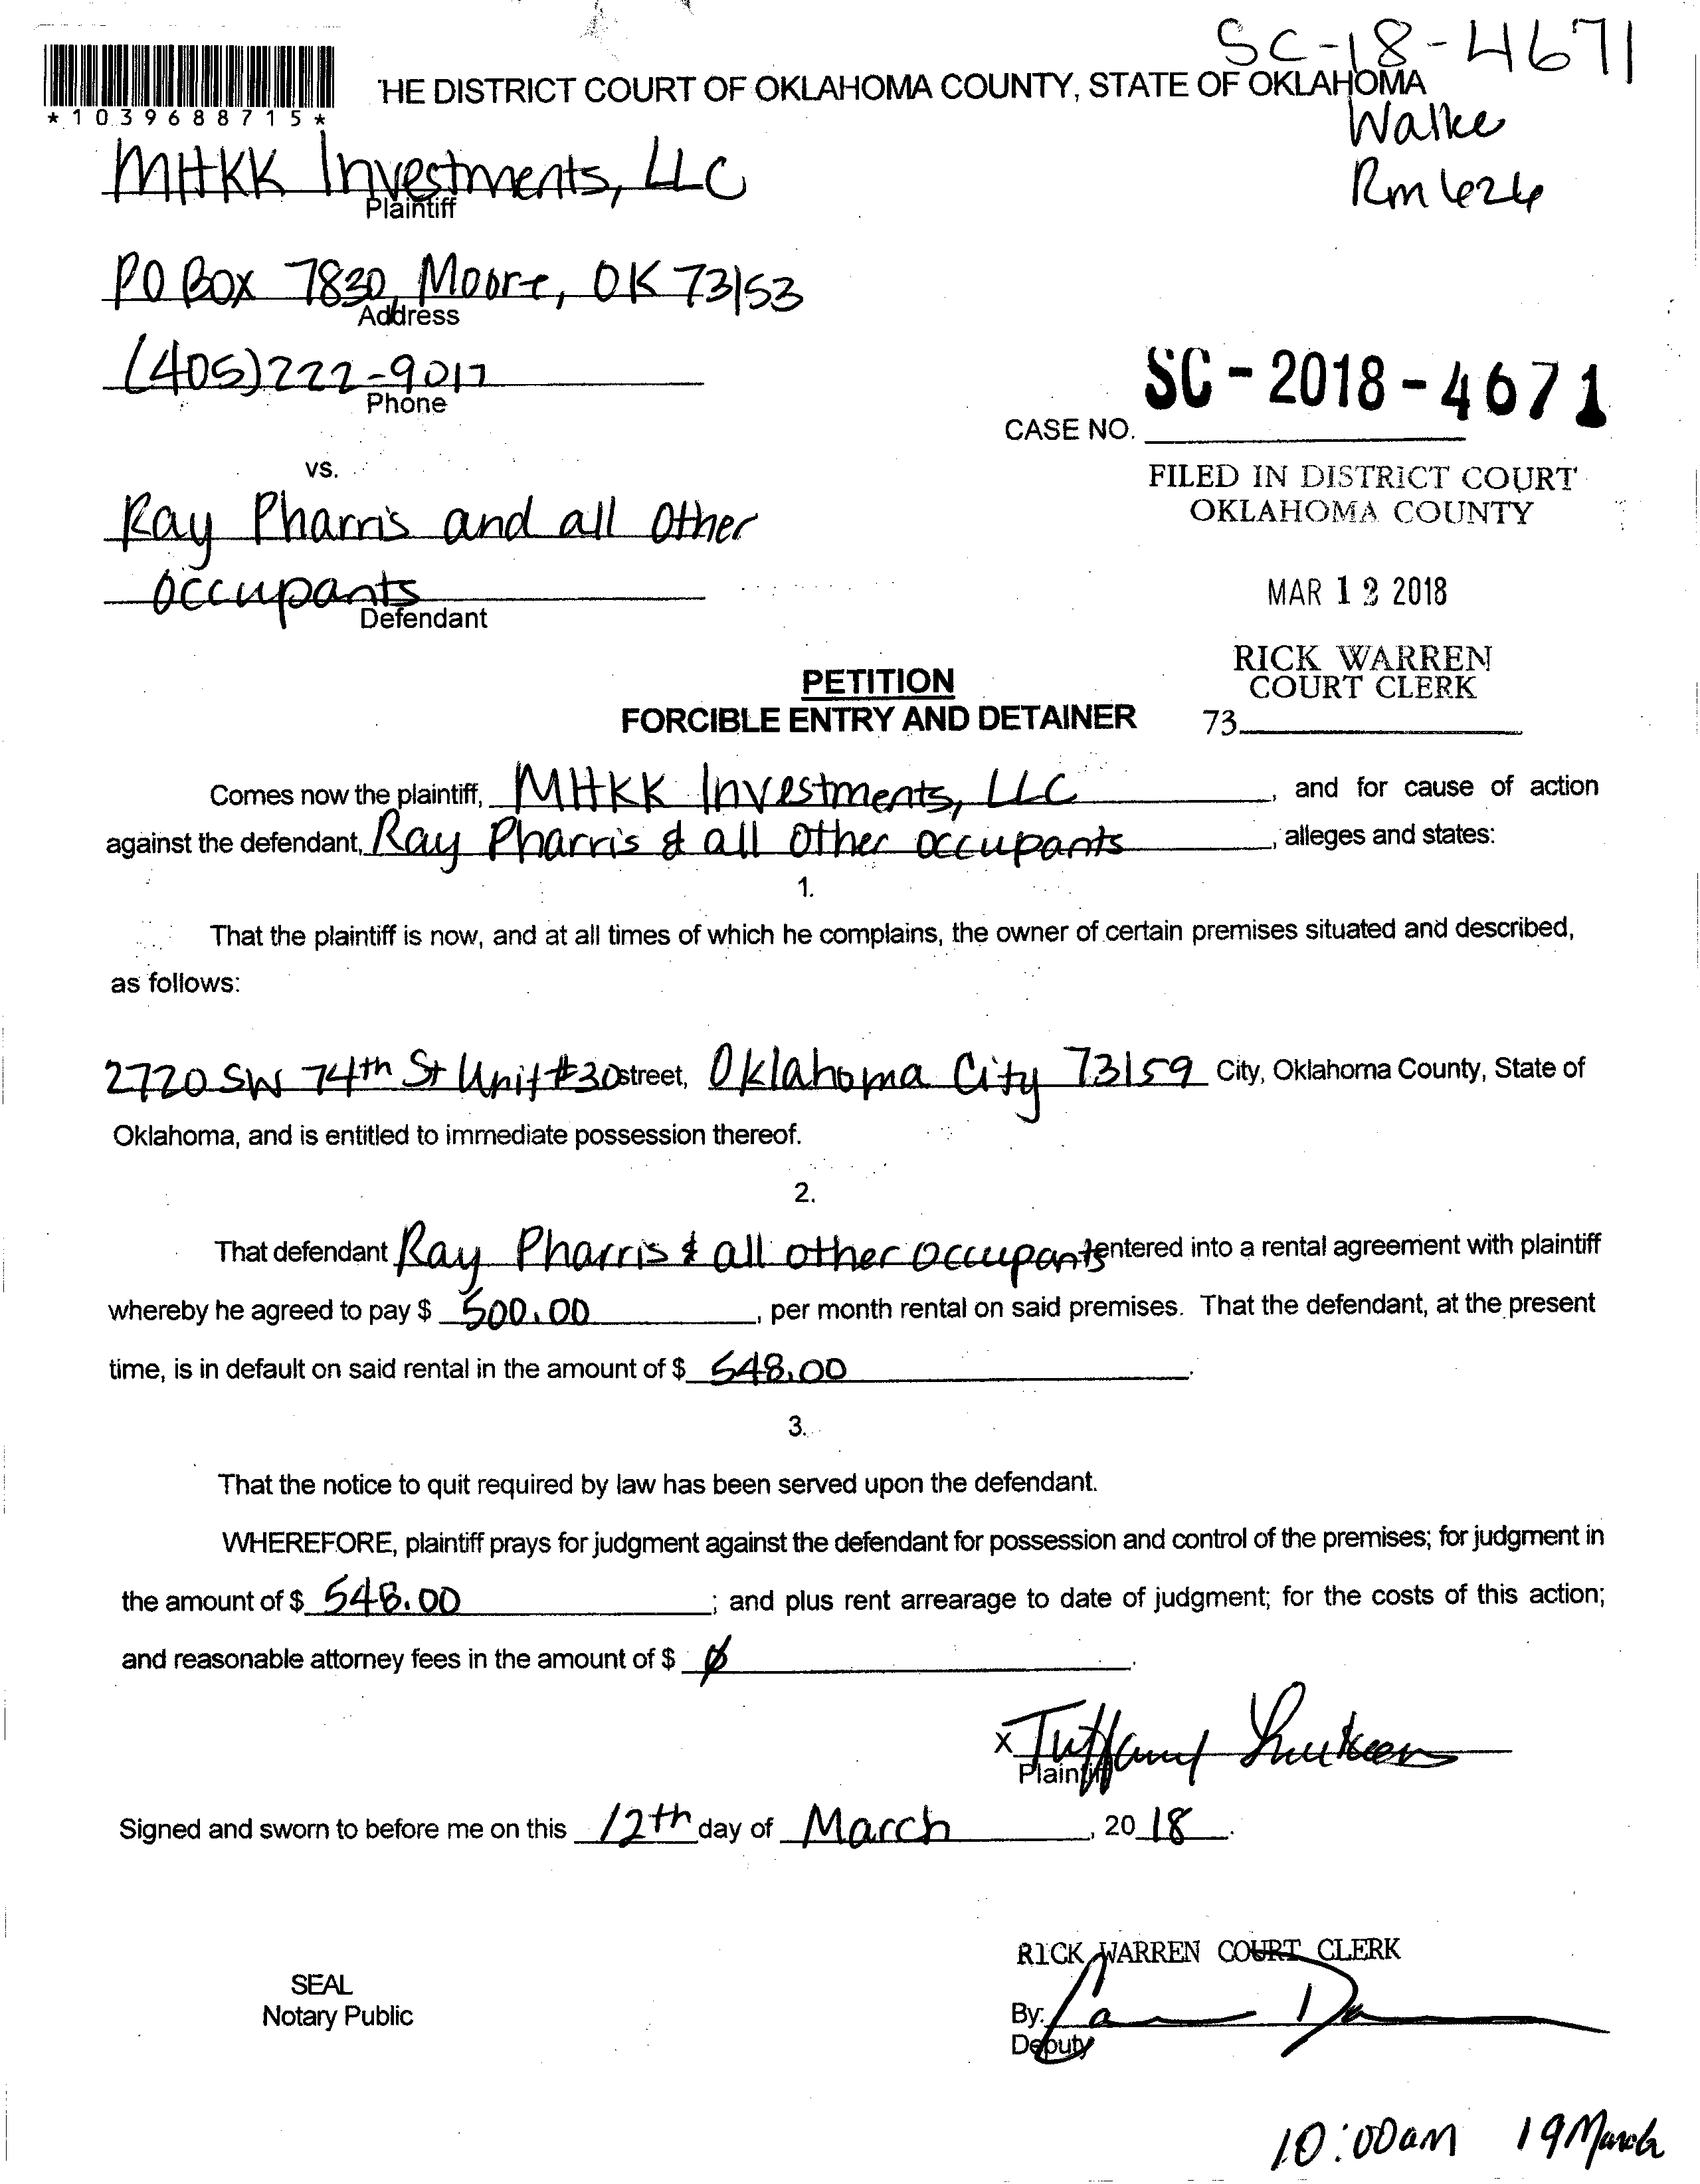 SC-18-4671
'HE DISTRICT COURT OF OKLAHOMA COUNTY, STATE OF OKLAHOMA
* 1 0 3 9 6 8 8 7 1 5 *
Walke
Rm 626
MHKK Investments, LLC
Plaintiff
PO Box 7830, Moore, OK 73153
Address
(405)222-9017
Phone
SC-2018-4671
CASE NO.
vs.
FILED IN DISTRICT COURT
OKLAHOMA COUNTY
Ray Pharris and all other
occupants
Defendant
MAR 12 2018
RICK WARREN
COURT CLERK
73
PETITION
FORCIBLE ENTRY AND DETAINER
Comes now the plaintiff, MHKK Investments, LLC, and for cause of action
against the defendant, Ray Pharris & all other occupants, alleges and states:
1.
That the plaintiff is now, and at all times of which he complains, the owner of certain premises situated and described,
as follows:
2720 SW 74th St Unit #30 street, Oklahoma City 73159 City, Oklahoma County, State of
Oklahoma, and is entitled to immediate possession thereof.
2.
That defendant Ray Pharris & all other occupants entered into a rental agreement with plaintiff
whereby he agreed to pay $ 500.00, per month rental on said premises. That the defendant, at the present
time, is in default on said rental in the amount of $ 548.00.
3.
That the notice to quit required by law has been served upon the defendant.
WHEREFORE, plaintiff prays for judgment against the defendant for possession and control of the premises; for judgment in
the amount of $ 548.00; and plus rent arrearage to date of judgment; for the costs of this action;
and reasonable attorney fees in the amount of $ ∅.
x Tiffany
Plaintiff
Signed and sworn to before me on this 12th day of March, 2018.
RICK WARREN COURT CLERK
SEAL
Notary Public
By:
Deputy
10:00am 19 March